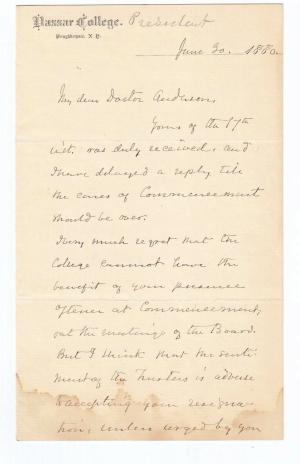 Vassar College. President
Poughkeepsie, N.Y.
June 30. 1880.
My dear Doctor Anderson,
Yours of the 17th
ult. was duly received, and
I have delayed a reply till
the cares of Commencement
should be over.
I very much regret that the
College cannot have the
benefit of your presence
oftener at Commencement,
and the meetings of the Board.
But I think that the senti-
ment of the Trustees is adverse
to accepting your resigna-
tion, unless urged by you